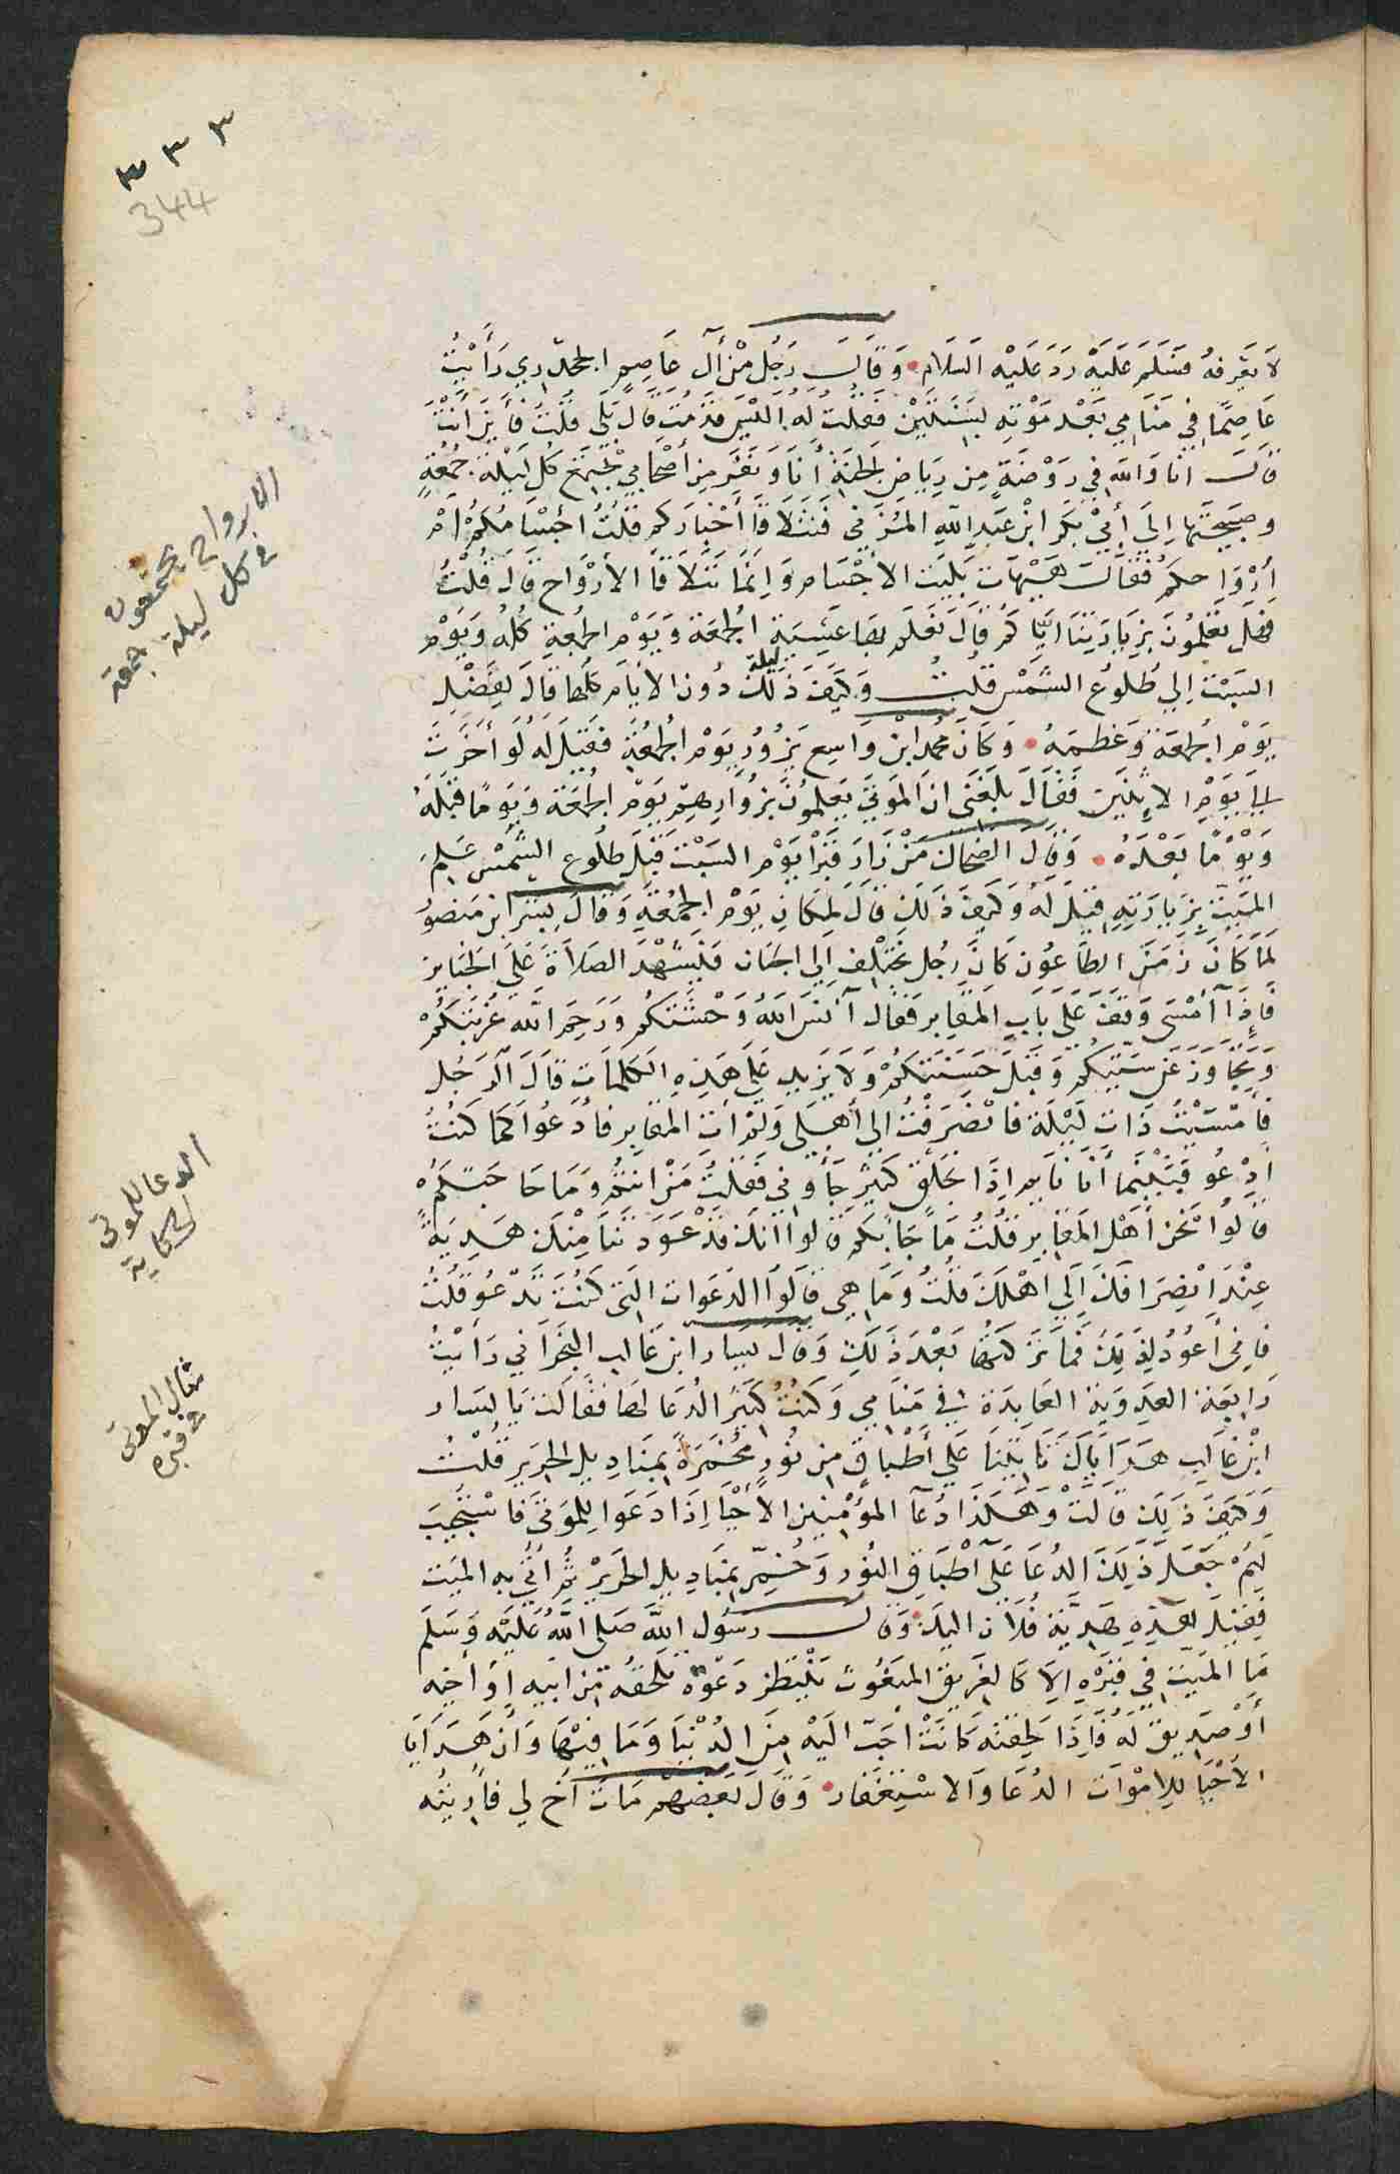 ٣٣٣
344
لَا يَعْرِفهُ فسَلَمَ عَلَيَهْ رَدَ عَلَيْه السَلَام وَقَالَ رَجُل مْن آل عَاصِم الجحدري رَأَيْتُ
عَاصِمًا في مَنَامِي بَعْد مَوْتِه لِسَنَتَيْن فَقُلْتُ لهُ اَلَيْسَ قَدْ مُتَ قَالَ بَلَى قُلْتَ فَأَيْنَ أَنْتَ
قَالَ انَا وَاللّهِ في رَوْضَةٍ مِن رِيَاض الجَنَة أَنَا وَنَفَر مِن أصْحَابي نَجْتَمِعُ كُل لَيْلَة جُمُعَةٍ
وصَبِيحَتهَا اِلَى أَبيْ بَكَر ابْن عَبدِ اللّهِ المُزَني فَنَتَلَاقَا أَخْبَارَكم قُلْتُ أجْسَامُكُمْ اَمْ
أَرْوَاحكمُ فَقَالَ هَيْهَات بَلِيَت الأَجْسَام وَاِنَمَا تَتَلَاقَا الأرْوَاح قَالَ قُلْتُ
فَهَل تَعْلَمُونَ بزِيَارَتِنَا ايَاكُم قَالَ نَعْلَم بهَا عَشِيَة الجُمعَة وَيَوْم الجمعَةِ كُلهُ وَيَوْم
السَبْت اِلي طُلوُع الشَمْس قلتُ وَكَيَفَ ذَلِكَ دُون الأيَام كُلهَا قَالَ لفَضْلِ
ليلة
يَوْم الجُمعَة وَعَظمَهُ وَكَانَ مُحمد ابْن وَاسِع يَزُورُ يَوْم الجُمعَة فَقِيْلَ لَهُ لَوْ أَخَرْتَ
اِليَ يَوْم الاثْنَين فَقَالَ بَلَغَنَى ان المَوتَى يَعْلَمُونَ بزُوَارِهِمْ يَوْم الجُمعَة وَيَومًا قَبْلَهُ
وَيَوْمًا بَعْدَهُ وَقَالَ الضحَاك مَنْ زَارَ قَبْرًا يَوْم السَبْت قَبْلَ طُلُوع الشَمْسَ عَلِمَ
المَيِتُ بِزِيَارَتِهِ قِيْلَ لَهُ وَكَيفَ ذَلِكَ قَالَ لمَكَانِ يَوْم الجُمُعَةِ وَقَالَ بشر ابن مَنصُورْ
لمَا كَانَ زَمَن الطَاعُون كَانَ رَجُل يَخْتَلِف اِلي الجبَان فَيَشْهَدَ الصَلَاةَ عَلَى الجنَايز
فَإِذَا أَمْسَى وَقَفَ عَلَى بَابِ المَقَابر فقَال آنَسَ اَللّهُ وَحْشَتَكُم وَرَحِمَ اللّه غُرْبَتَكُمْ
وَتَجَاوَزَ عَن سَيئَتِكم وَقَبِلَ حَسَنَتَكُمْ وَلَا يَزِيد عَلَى هَذِهِ الكَلِمَاتِ قَالَ الرَجُل
فَأَمْسَيْتُ ذَاتَ لَيْلَة فَانْصَرَفْتُ إلى أهْلي وَلمَ آتِ المقَابِر فَأَدْعُوا كَمَا كنْتُ
أَدْعُو فَبَيْنَمَا أَنَا نَايم اِذَا بخَلْق كَثِيْر جَأوني فَقُلْتُ مَنْ انْتُمْ وَمَا حَاجَتُكُمْ
قَالوُا نَحْن أَهْل المَقَابِر قُلْتُ مَا جَابكم قَالوا انكَ قَدْ عَوَدْتنَا مِنْكَ هَدِيَةً
عِنْدَ اِنْصِرَافكَ اِلي اَهْلكَ قُلْتُ وَمَا هِي قَالوَا الدَعَوات التَى كُنتَ تَدْعُو قُلْتُ
فَاِني أَعُودُ لِذَلِكَ فمَا تَرَكتهَا بَعْدَ ذَلِكَ وَقَالَ بَشار ابن غَالب البَخْرَاني رَأَيْتُ
رَابعَة العَدَوِيَة العَابِدَة في مَنَامِي وَكُنْتُ كَثيْر الدُعَا لهَا فقَالَت يَا بَشار
ابْن غَالِب هَدَايَاكَ تَأتِيْنَا عَلَي أَطْبَاق مِن نُورِ مُخمَرَة بمنَادِيل الحَرِير قُلْتُ
وَكَيفَ ذَلِكَ قَالَتْ وَهَكَذَا دُعَآ المؤْمِنِين الأَحْيَا إِذَا دَعَوَا لِلمَوتَى فَاسْتُجِيبَ
لَهُمْ جَعَلَ ذَلِكَ الدُعَا عَلَى أَطْبَاقِ النُور وَخُمّر بمَنَادِيل الحَرِيْر ثُمَ أُتِي بِهِ المَيت
فَقِيْلَ هَذِهِ هَدِيَة فُلَان اليكَ وَقَالَ رَسُوُل اللّهَ صَلى اللّهُ عَلَيْه وَسَلَم
مَا المَيت في قَبْرهِ اِلَا كَالغَرِيق المتَغَوث يَنْتِظر دَعْوَةً تَلحَقُه مْن ابَيِهِ اَوْ أخِيْهِ
أَوْ صَدِيق لَهُ فَاِذَا لَحِقتْه كَانَتْ أَحَبّ اليَهْ مِنَ الدُنْيَا وَمَا فِيْهَا وَأن هَدَايَا
الأحْيَا لِلِأمْوَات الدُعَا وَالاسْتِغفَار وَقَالَ بَعَضهُمْ مَاتَ أخ لي فَاُرِيْتُه
الارواح يجتمعون
في كل ليلة جمعة
الدعا للموتى
حكاية
مثال الموتى
في قبره